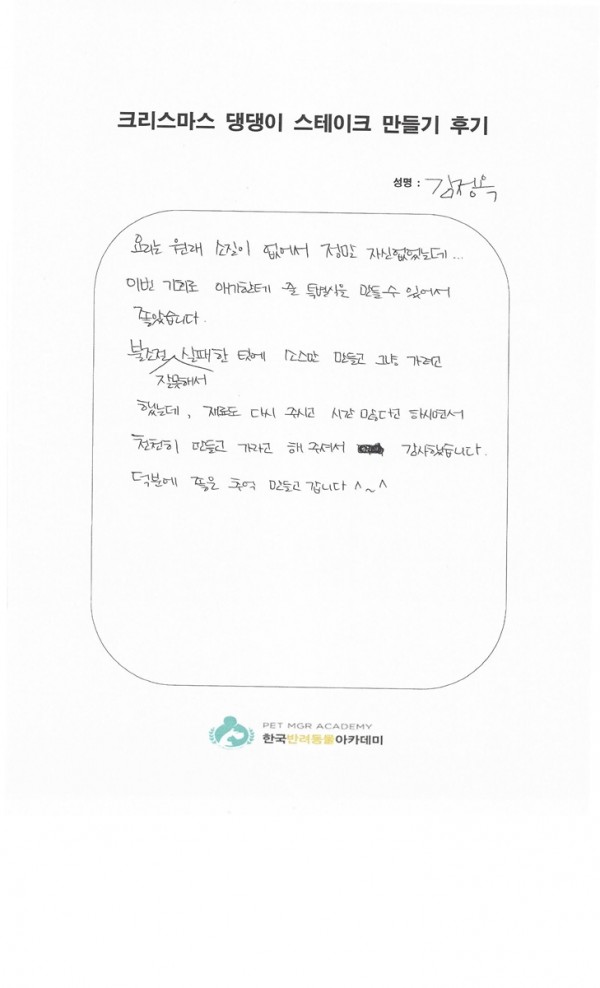 크리스마스 댕댕이 스테이크 만들기 후기
성명 : 김정옥
요리는 원래 소질이 없어서 정말 자신없었는데...
이번 기회로 애기한테 줄 특별식을 만들수 있어서
좋았습니다.
불조절 잘못해서 실패한 탓에 소스만 만들고 그냥 가려고
했는데, 재료도 다시 주시고 시간 많다고 하시면서
천천히 만들고 가라고 해 주셔서 감사했습니다.
덕분에 좋은 추억 만들고 갑니다 ^~^
PET MGR ACADEMY
한국반려동물아카데미